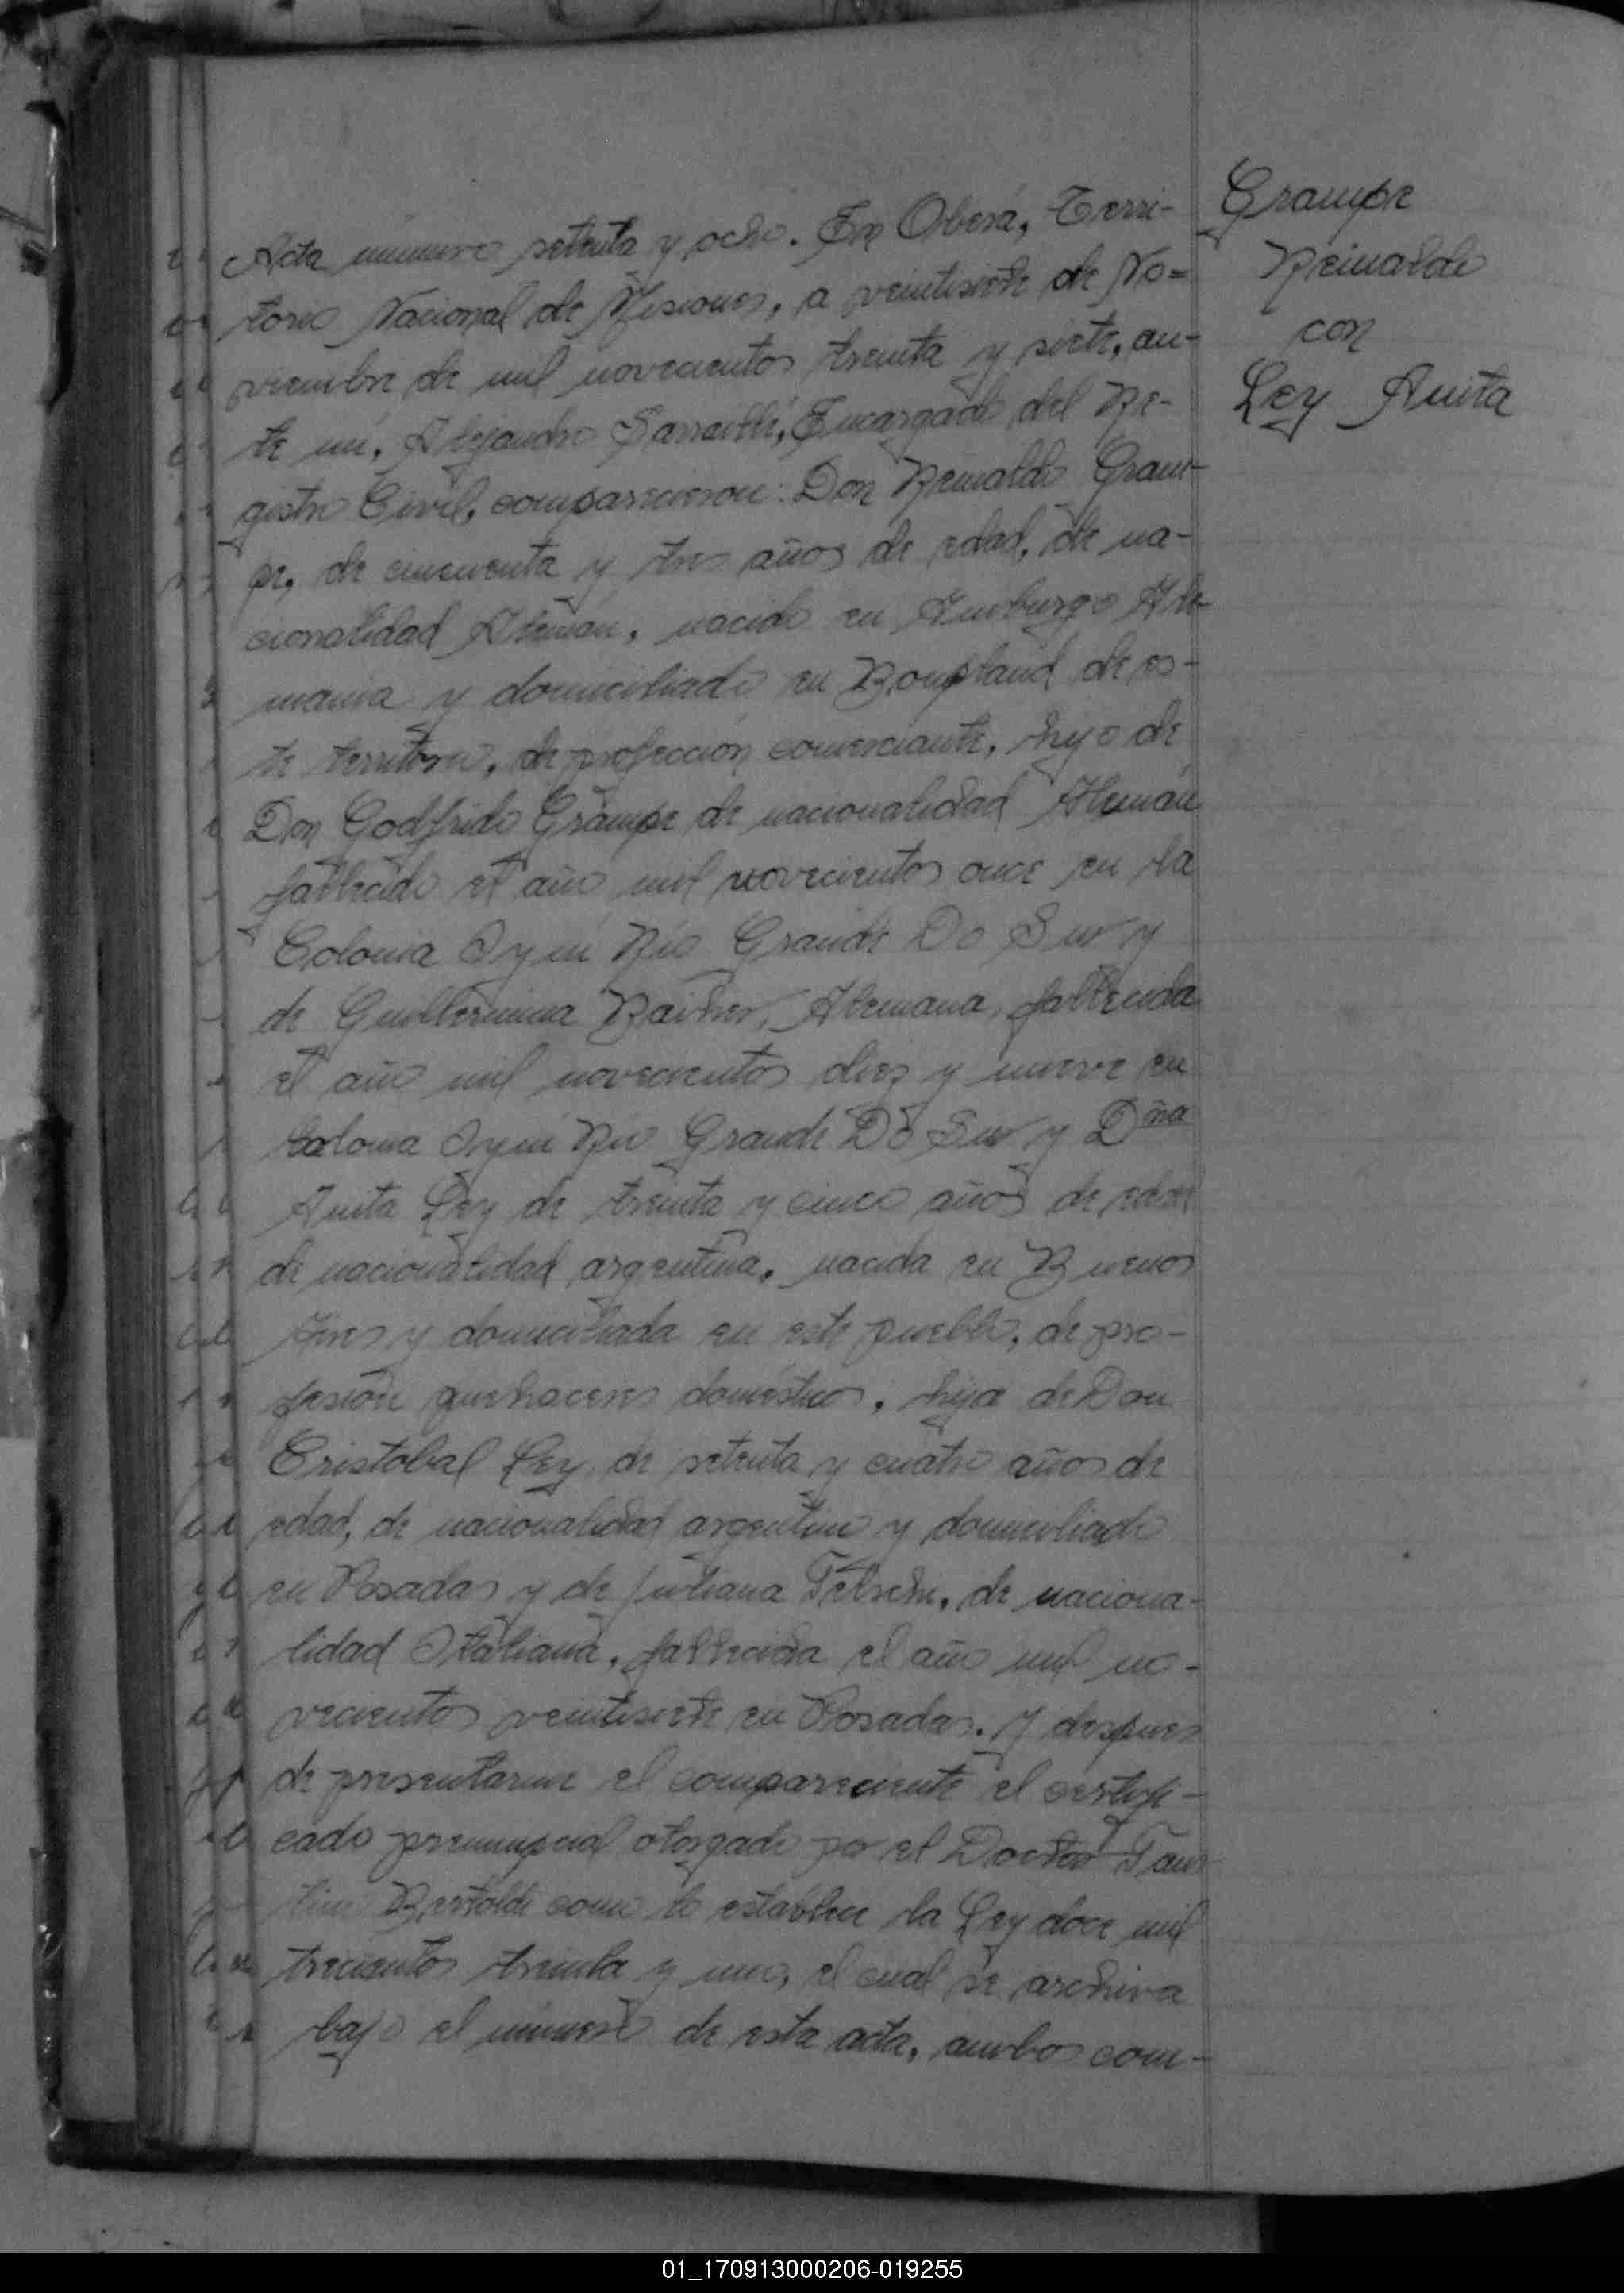 Grampe
Reinaldo
con
Ley Anita
Acta número setenta y ocho. En Oberá, Terri-
torio Nacional de Misiones, a veintisiete de No=
viembre de mil novecientos treinta y siete, an-
te mí, Alejandro Encargado del Re-
gistro Civil, comparecieron: Don Reinaldo Gram-
pe, de cincuenta y tres años de edad, de na-
cionalidad Alemán, nacido en Amburgo Ale-
mania y domiciliado en Bonpland de es-
te territorio, de profección comerciante, hijo de
Don Godfrido Grampe de nacionalidad Alemán
fallecido el año mil novecientos once en la
Colonia Iyuí Río Grande Do Sur y
de Guillermina Alemana, fallecida
el año mil novecientos diez y nueve en
Colonia Iyuí Río Grande Do Sur y Dña
Anita Ley de treinta y cinco años de edad
de nacionalidad argentina, nacida en Buenos
Aires y domiciliada en este pueblo, de pro-
fesión quehaceres domésticos, hija de Don
Cristobal Ley, de setenta y cuatro años de
edad, de nacionalidad argentino y domiciliado
en Posadas y de Juliana de naciona-
lidad Italiana, fallecida el año mil no-
vecientos veintisiete en Posadas. Y despues
de presentarme el compareciente el certifi-
cado prenupcial otorgado por el Doctor
Bertoldi como lo establece la Ley doce mil
trecientos treinta y uno, el cual se archiva
bajo el número de esta acta, ambos com-
01_170913000206-019255